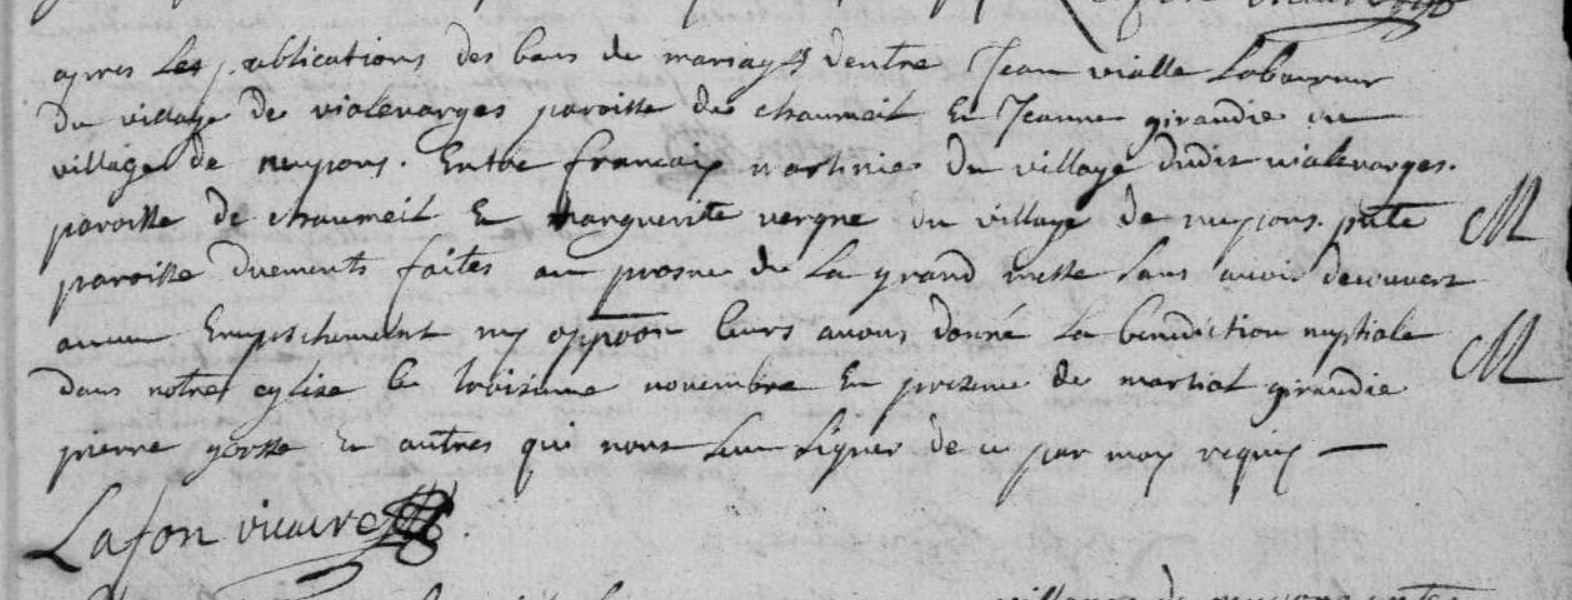 apres Les publications des bans de mariages d'entre Jean vialle Laboureur
du village de vialevarges paroisse de chaumeil Et Jeanne giraudie du
village de neupons. Entre francois martinie du village dudit vialevarges.
paroisse de chaumeil Et marguerite vergne du village de neupons. pnte M
paroisse duements faites au prosne de La grand messe sans avoir decouvert
aucun Empechement ny oppoon leurs avons donné La benediction nuptiale M
dans notre eglise le troisieme novembre En presence de martial giraudie
pierre gorsse et autres qui nont sceu signer de ce par moy requis
Lafon vicaire
village de neupons entre